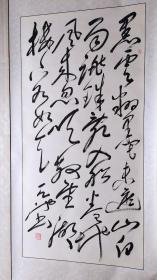 黑云翻墨未遮山白
雨跳珠乱入船卷地
风来忽吹散望湖
楼下水如天